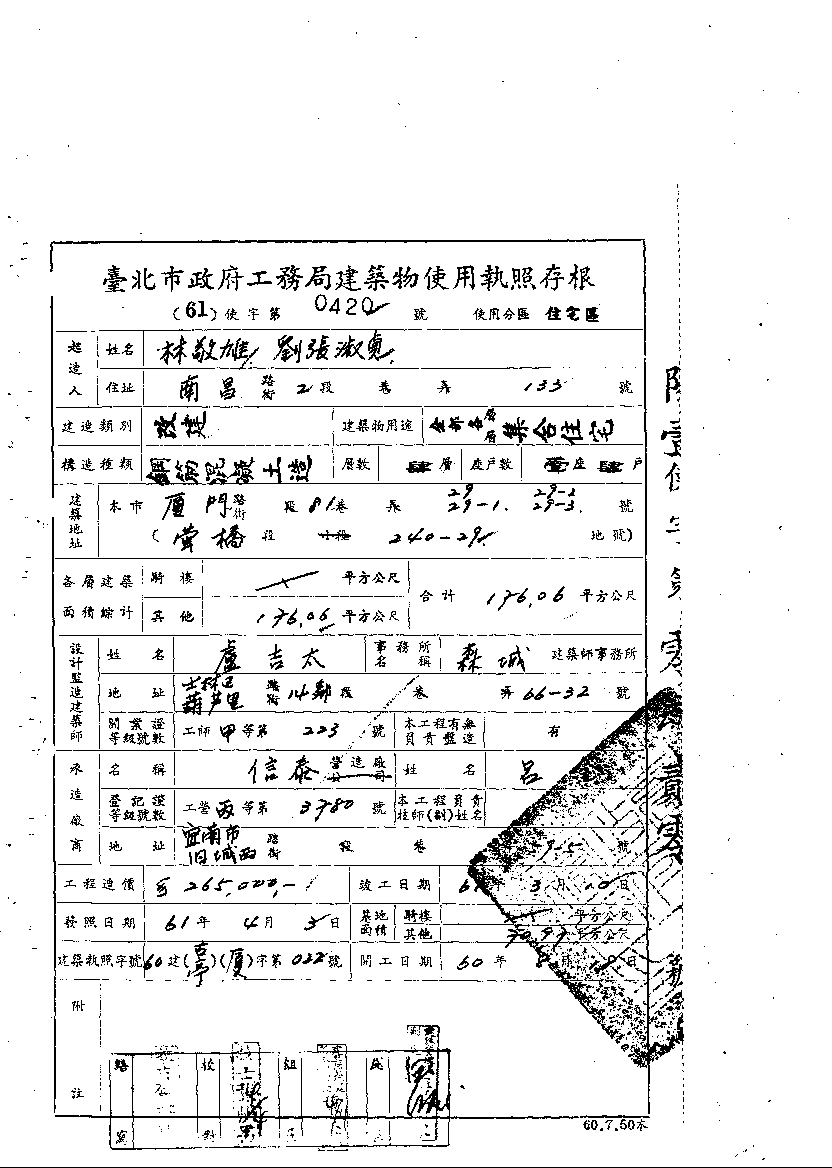 臺北市政府工務局建築物使用執照存根
(61)使字第 0420 號 使用分區 住宅區
起造人 姓名 林敬雄 劉張淑貞
住址 南昌 路街 2段 巷 弄 133 號
建造類別 改建 建築物用途 全部各層 集合住宅
構造種類 鋼筋混凝土造 層數 肆層 座戶數 壹座肆戶
建築地址 本市 厦門 路街 段 81巷 弄 29 29-1. 29-2 29-3. 號
(螢橋段 小段 240-29 地號)
各層建築面積綜計 騎樓 平方公尺 合計 176.06 平方公尺
其他 176.06 平方公尺
設計監造建築師 姓名 盧吉太 事務所名稱 森城 建築師事務所
地址 士林區葫芦里 路街 14鄰 段 巷 弄 66-32 號
開業證等級號數 工師 甲 等第 223 號 本工程有無負責監造 有
承造廠商 名稱 信泰 營造廠公司 姓名 呂
登記證等級號數 工營 丙 等第 3780 號 本工程負責技師(副)姓名
地址 宜南市旧城西 路街 段 巷 號
工程造價 $ 265,000,- 竣工日期 61年 3月 10日
發照日期 61年 4月 5日 基地面積 騎樓 平方公尺
其他 70.97 平方公尺
建築執照字號 60建(古亭)(厦)字第 022 號 開工日期 60年 8月 日
附註
校對 組
60.7.50本